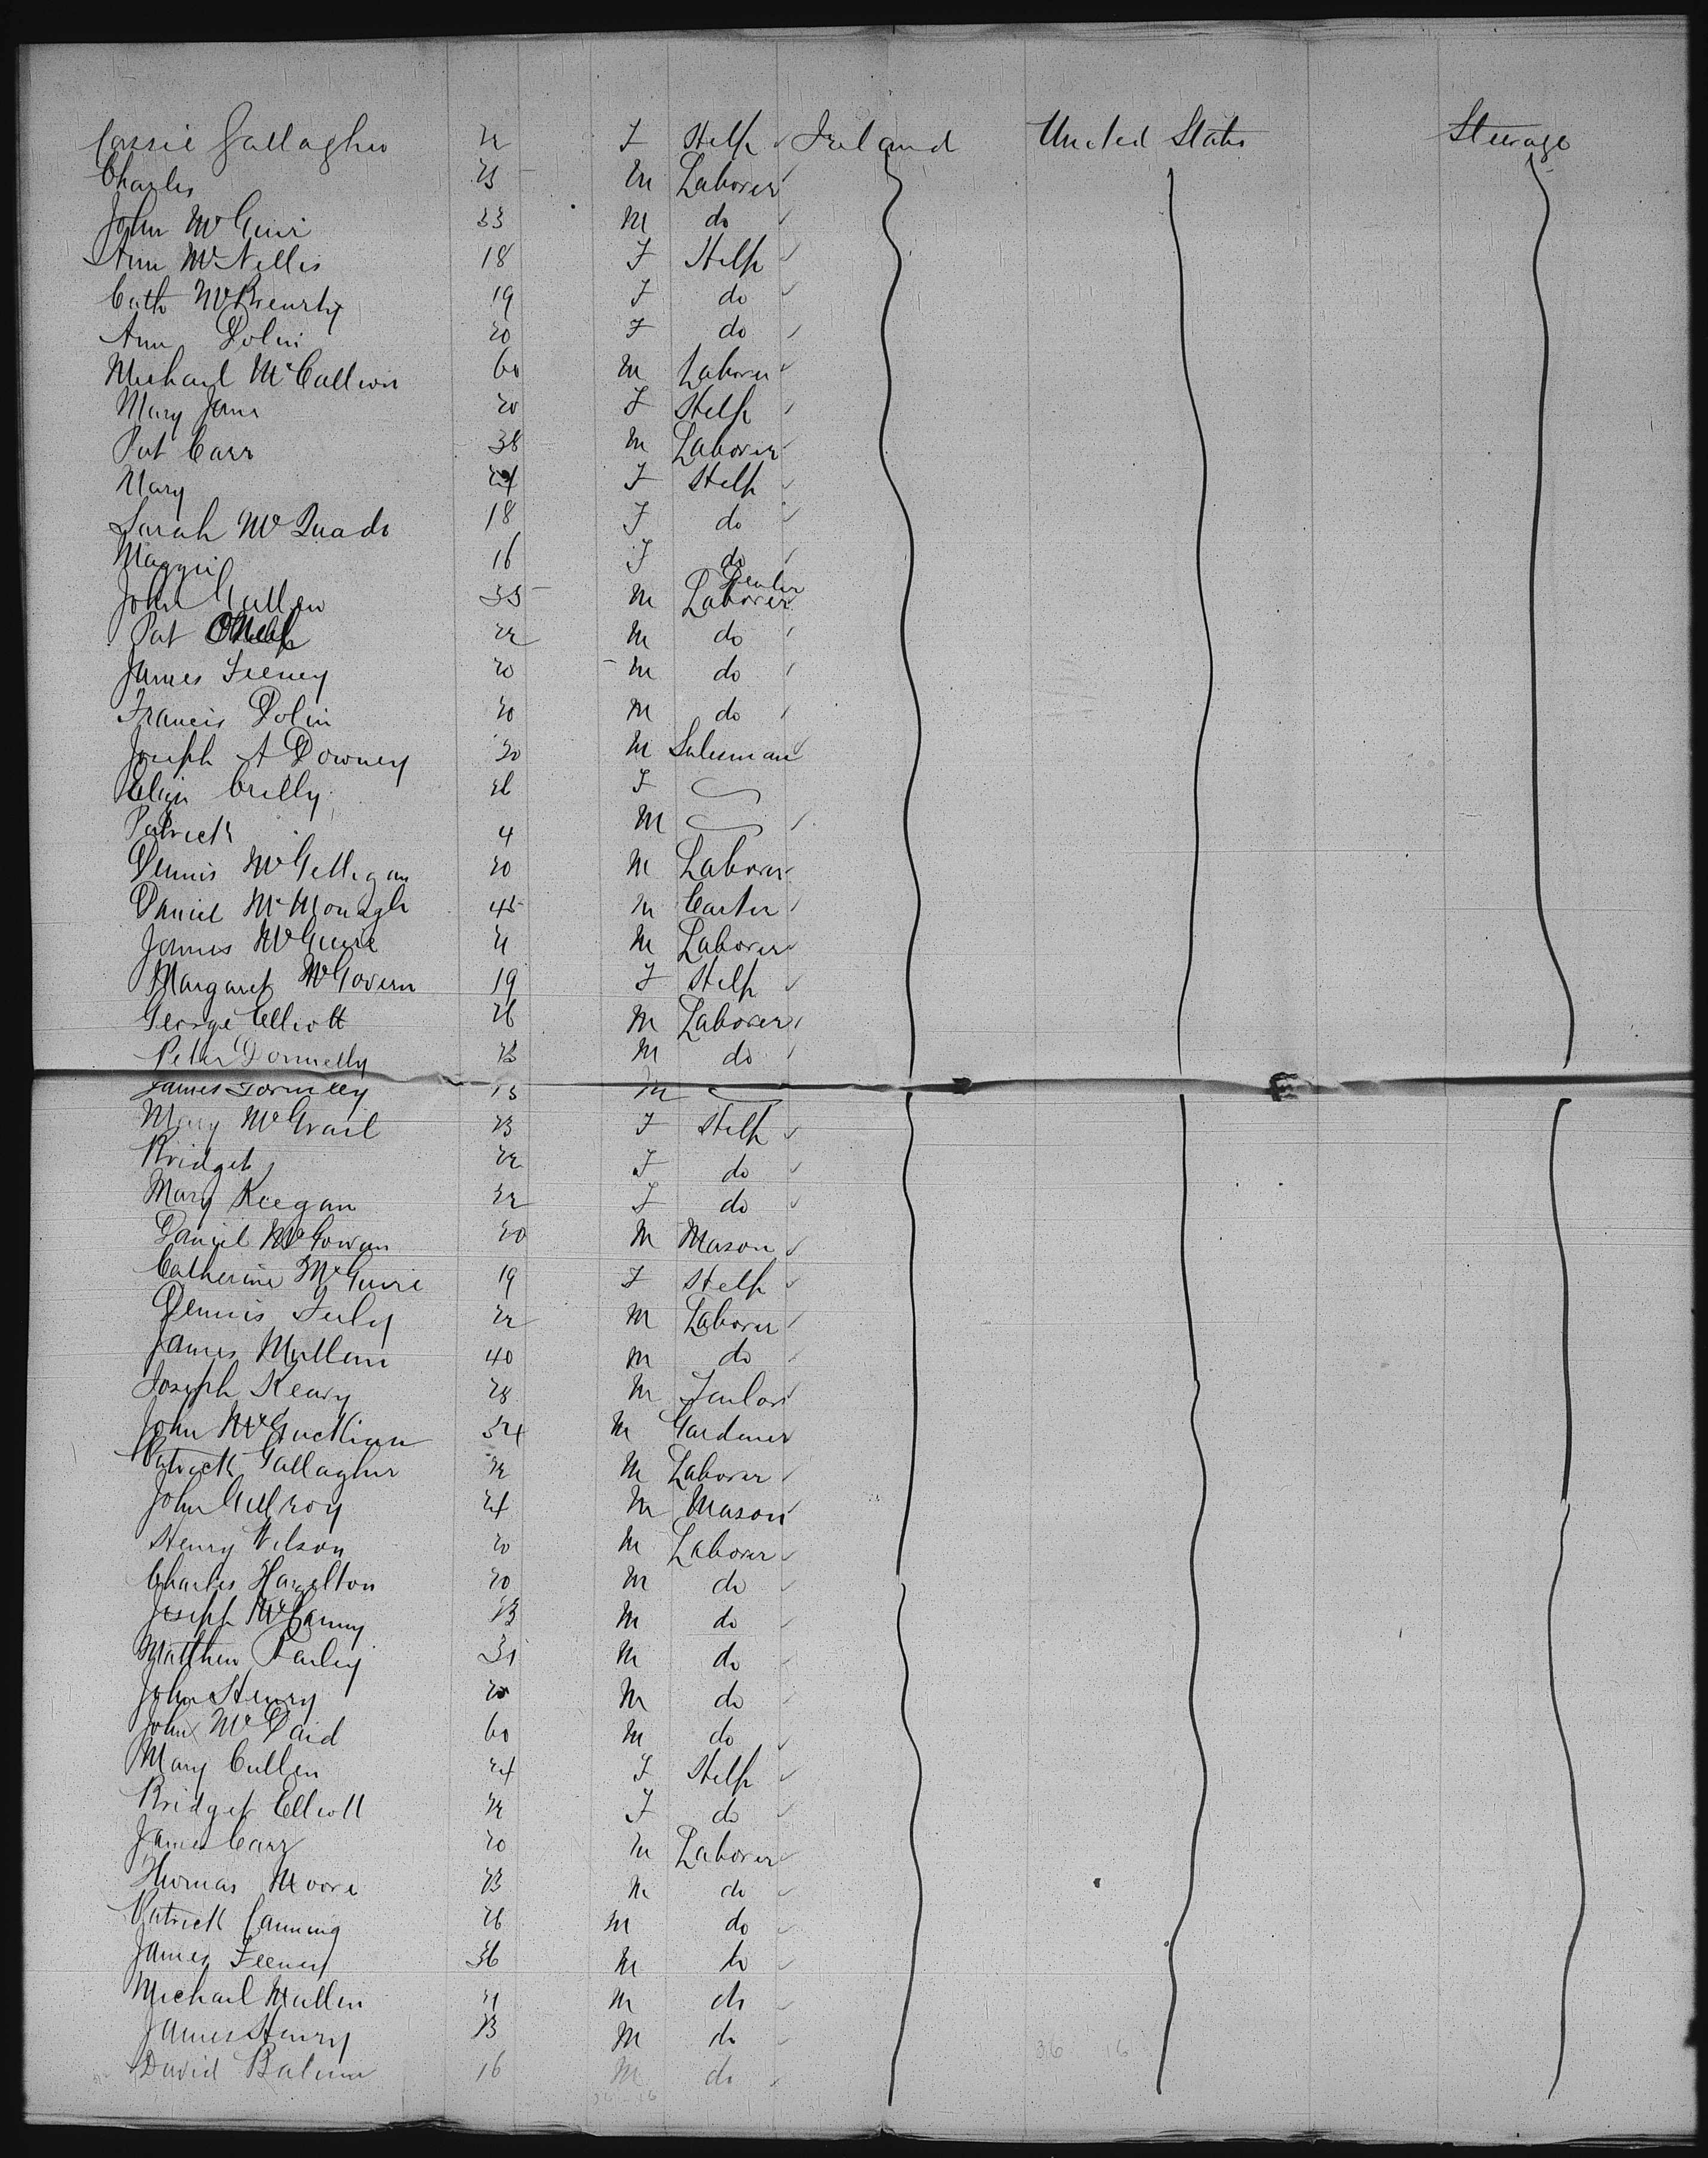 Cassie Gallagher 22 F Help Ireland United States Steerage
Charles 25 M Laborer
John McGuir 33 M do
Ann McNellis 18 F Help
Cath McBrearty 19 F do
Ann Dolin 20 F do
Michael McCallion 60 M Laborer
Mary Jane 20 F Help
Pat Carr 38 M Laborer
Mary 24 F Help
Sarah McQuade 18 F do
Maggie 16 F do
John Cullen 35 M Laborer Dealer
Pat 22 M do
James Feeney 20 M do
Francis Dolin 20 M do
Joseph A Downey 30 M Salesman
Eliza Crilly 26 F
Patrick 4 M
Dennis McGettigan 20 M Laborer
Daniel McMonagle 45 M Carter
James McGuire 21 M Laborer
Margaret McGovern 19 F Help
George Elliott 26 M Laborer
Peter Donnelly M do
James Gormley 13 M
Mary McGrail 23 F Help
Bridget 22 F do
Mary Keegan 22 F do
Daniel McGowan 20 M Mason
Catherine McGuire 19 F Help
Dennis 22 M Laborer
James Mullen 40 M do
Joseph Keary 28 M Tailor
John McGuckian 34 M Gardener
Patrick Gallagher 22 M Laborer
John Gillroy 24 M Mason
Henry Wilson 20 M Laborer
Charles Hazelton 20 M do
Joseph McCanny 23 M do
Matthew Farley 31 M do
John Henry 20 M do
John McDaid 60 M do
Mary Cullen 24 F Help
Bridget Elliott 22 F do
James Carr 20 M Laborer
Thomas Moore 23 M do
Patrick Canning 26 M do
James Feeney 36 M do
Michael Mullin 21 M do
James Henry 23 M do
David 16 M do
36 16